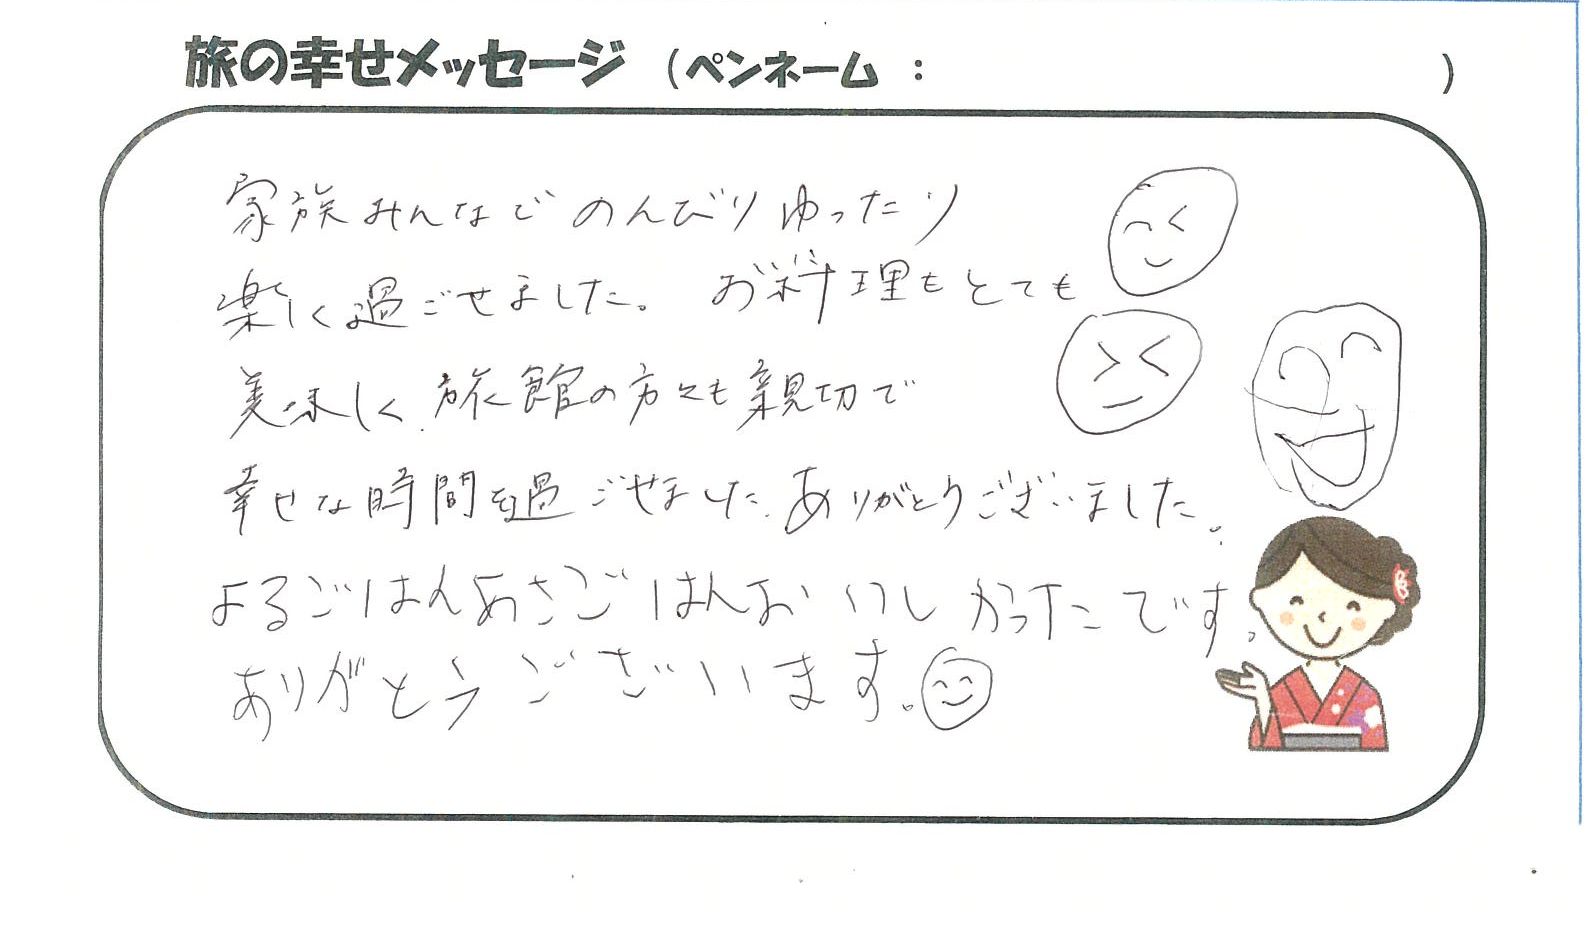 旅の幸せメッセージ (ペンネーム : )
家族みんなでのんびりゆったり
楽しく過ごせました。お料理もとても
美味しく、旅館の方々も親切で
幸せな時間を過ごせました。ありがとうございました。
よるごはんあさごはんおいしかったです。
ありがとうございます。